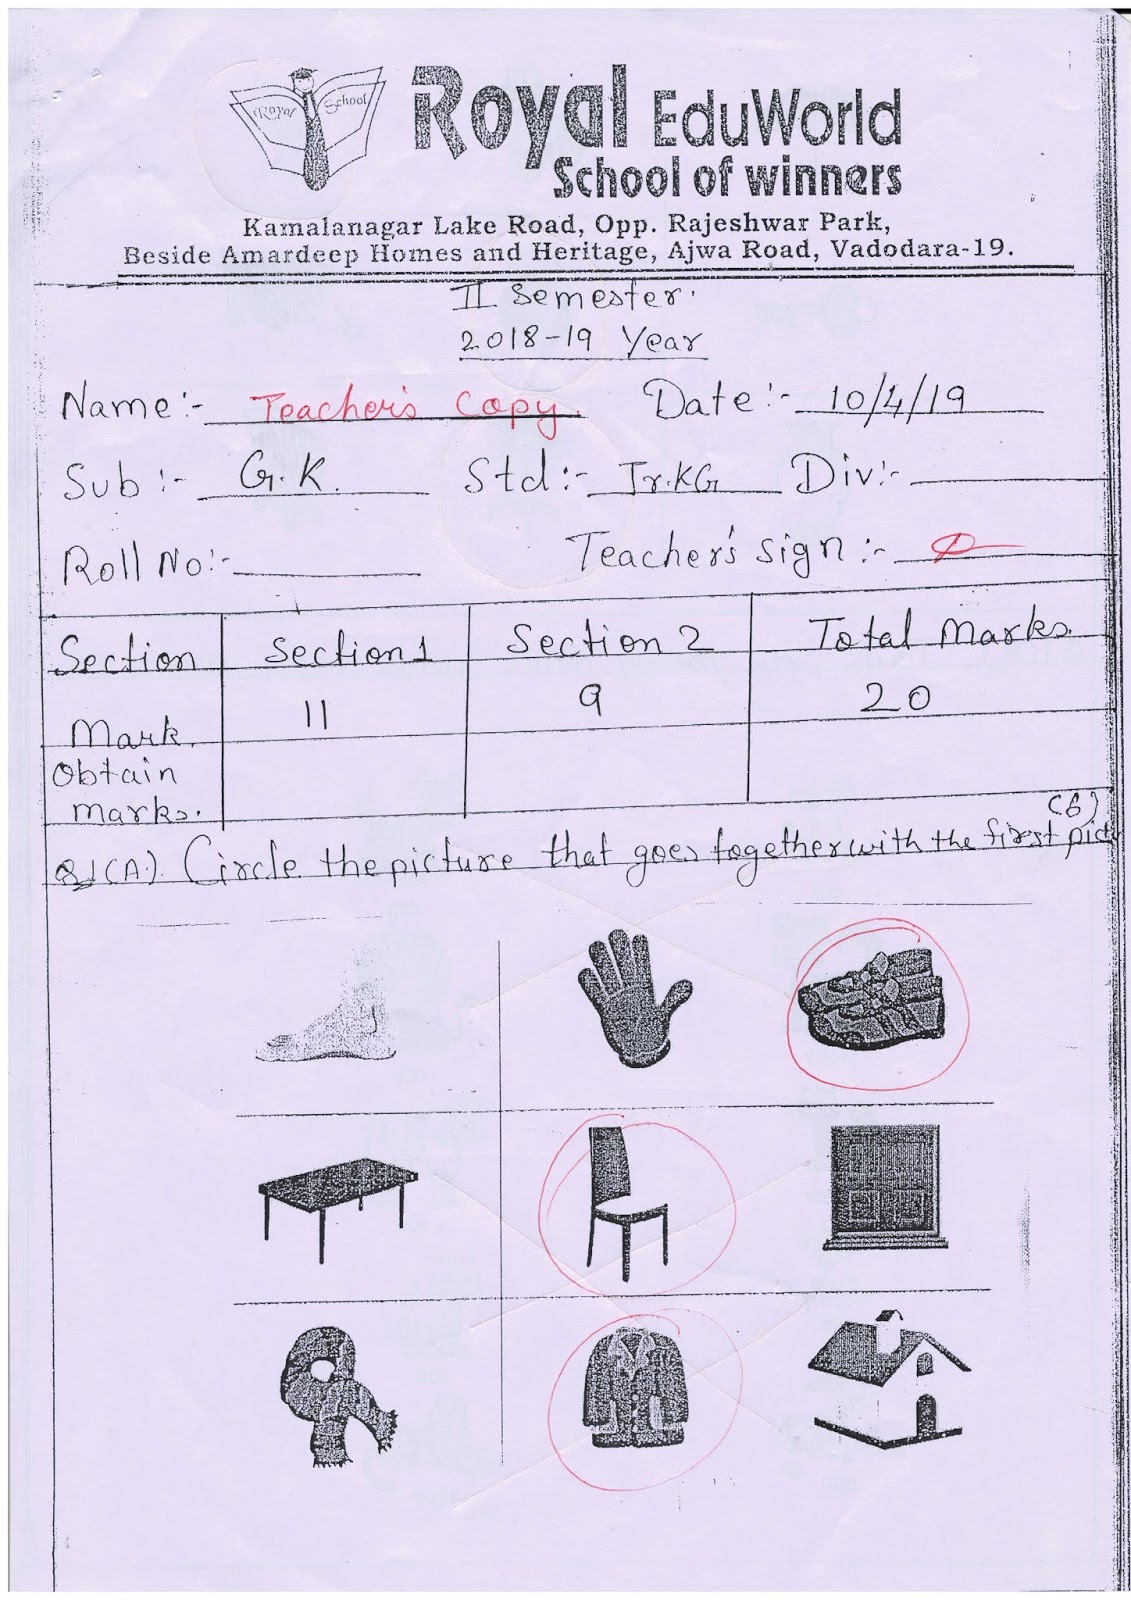 Royal School
Royal EduWorld
School of winners
Kamalanagar Lake Road, Opp. Rajeshwar Park,
Beside Amardeep Homes and Heritage, Ajwa Road, Vadodara-19.
II Semester.
2018-19 Year
Name:- Teacher's Copy. Date:- 10/4/19
Sub:- G.K. Std:- Jr.KG Div:-
Roll No:- Teacher's sign:-
Section Section 1 Section 2 Total Marks.
Mark. 11 9 20
Obtain
marks.
(6)
Q1(A.) Circle the picture that goes together with the first pictu